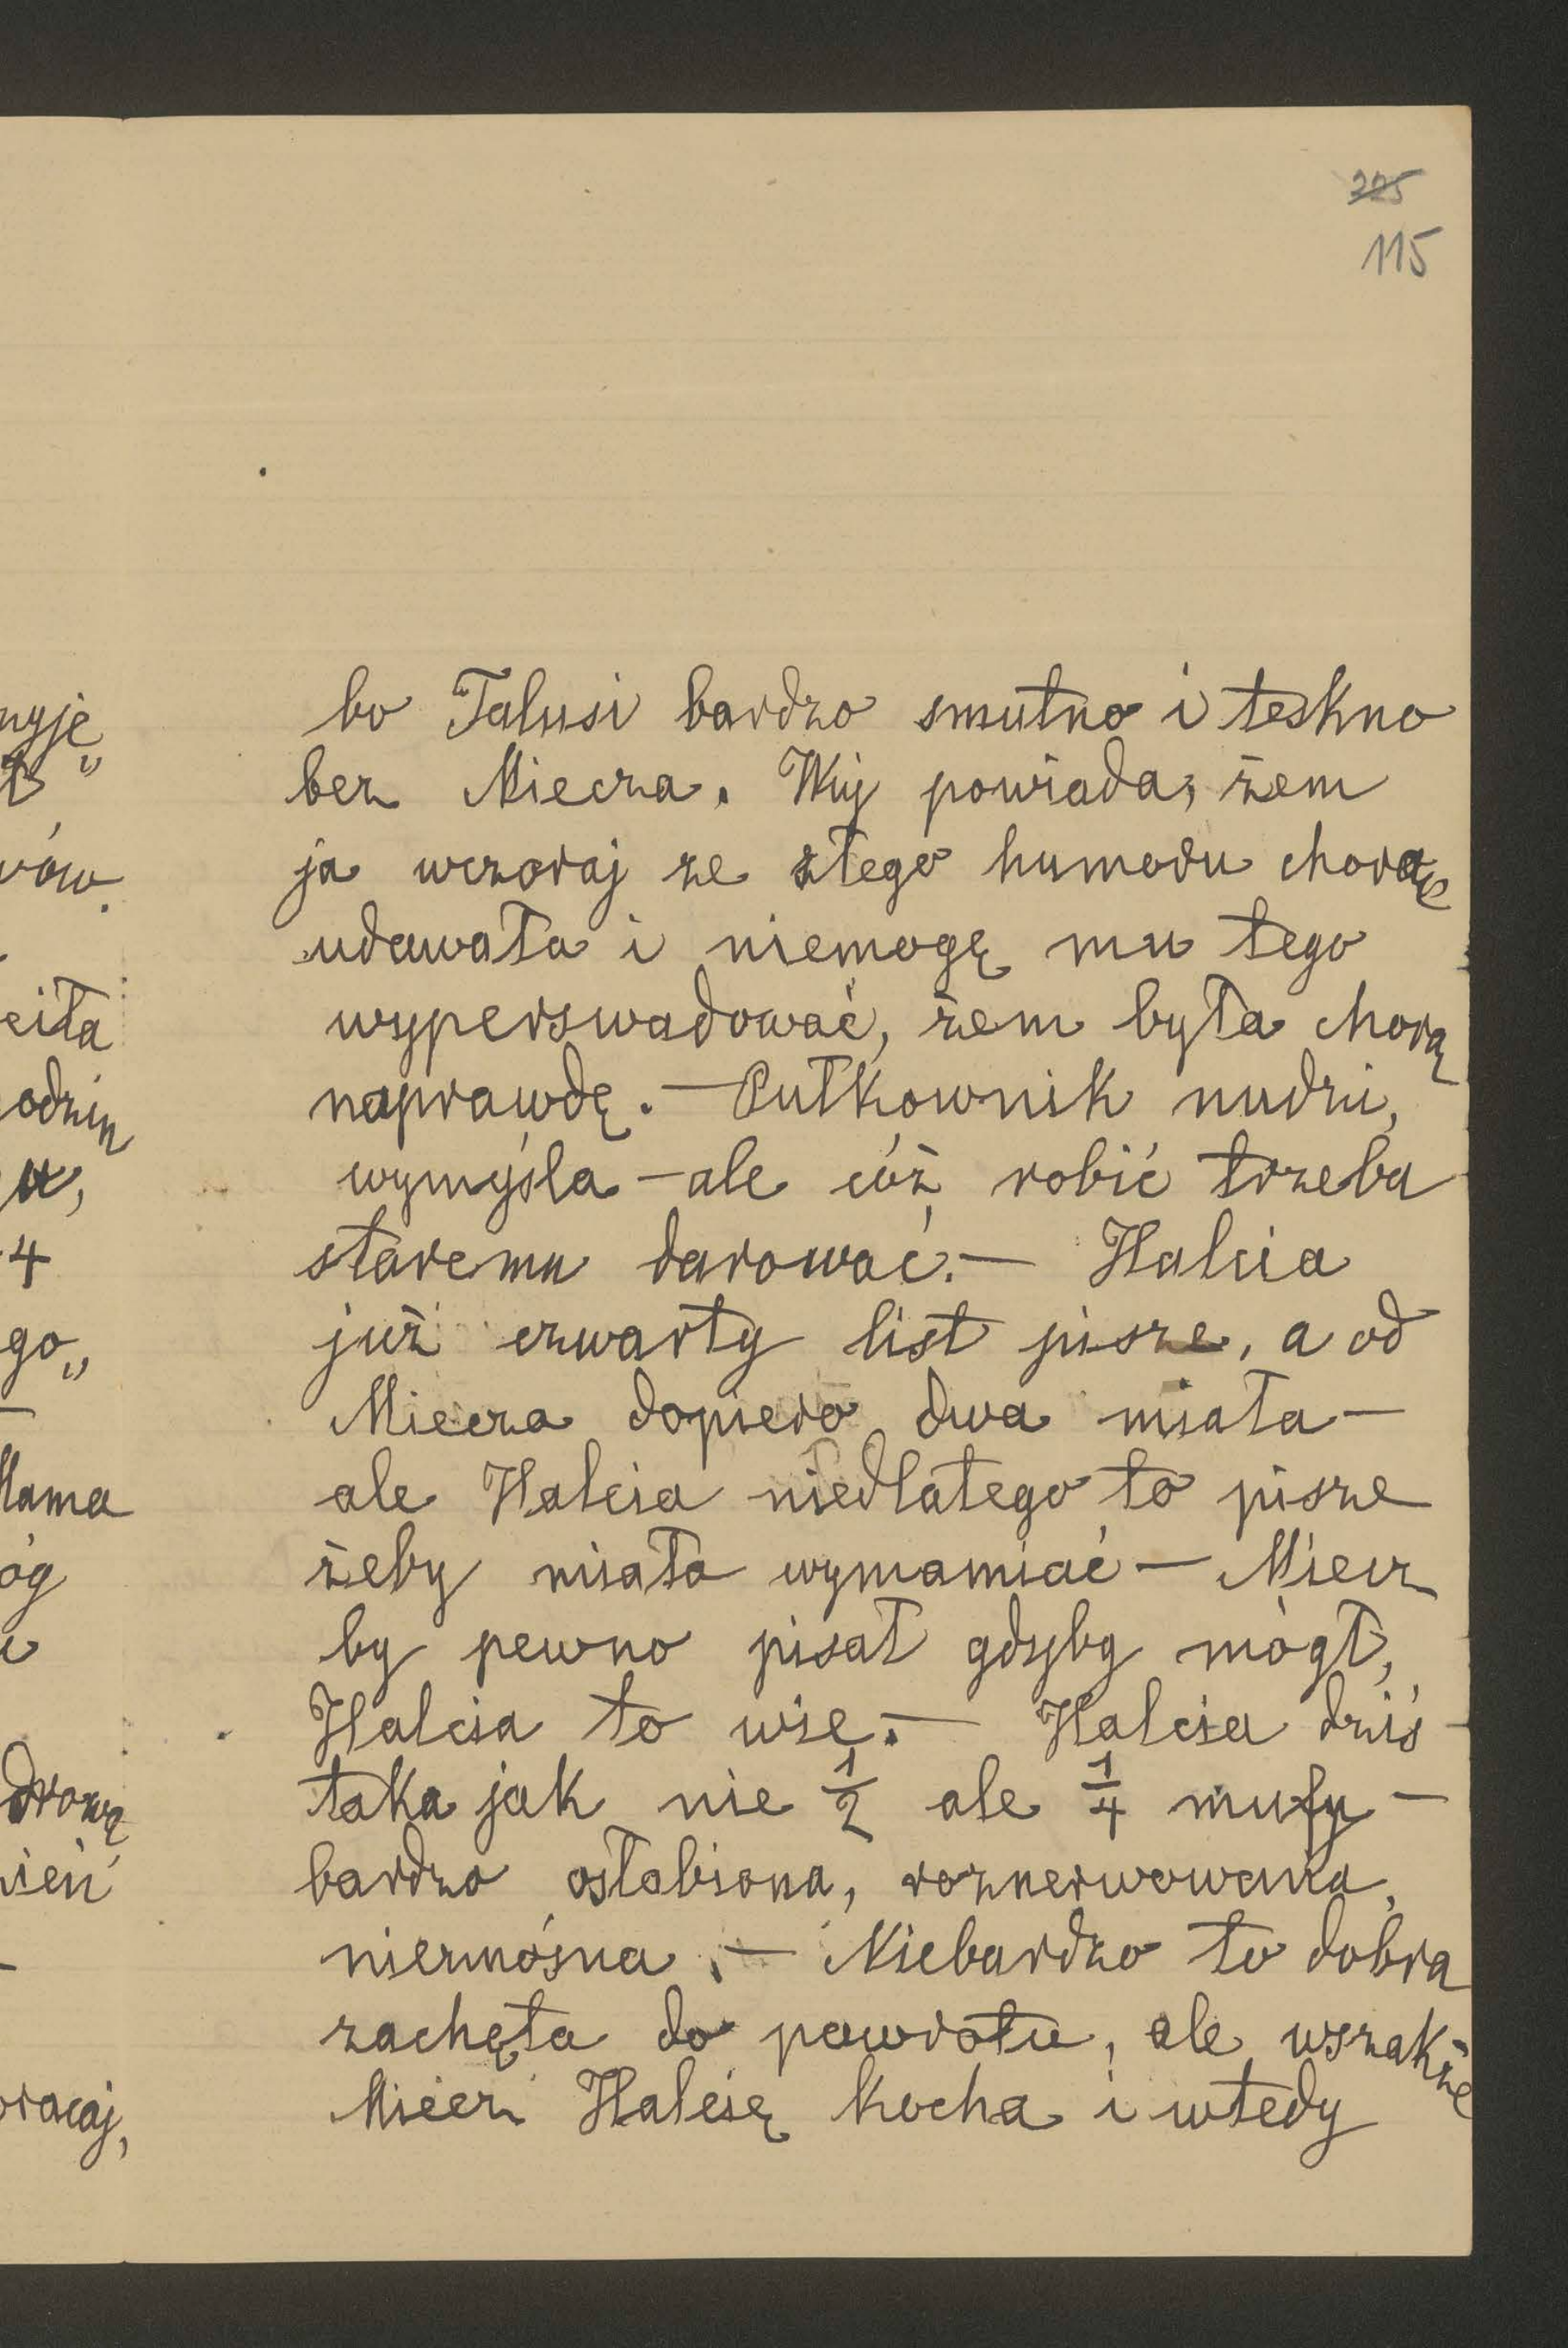 225
115
bo Talusi bardzo smutno i teskno
bez Miecza. Wuj powiada, żem
ja wczoraj ze złego humoru chorą
udawała i niemogę mu tego
wyperswadować, żem była chorą
naprawdę. — Pułkownik nudzi,
wymyśla — ale cóż robić trzeba
staremu darować. — Halcia
już czwarty list pisze, a od
Miecza dopiero dwa miała —
ale Halcia niedlatego to pisze
żeby miała wymawiać — Miecz
by pewno pisał gdyby mógł,
Halcia to wie. — Halcia dziś
taka jak nie ½ ale ¼ mufy —
bardzo osłabiona, roznerwowana,
nieznośna. — Niebardzo to dobra
zachęta do powrotu, ale wszakże
Miecz Halcię kocha i wtedy